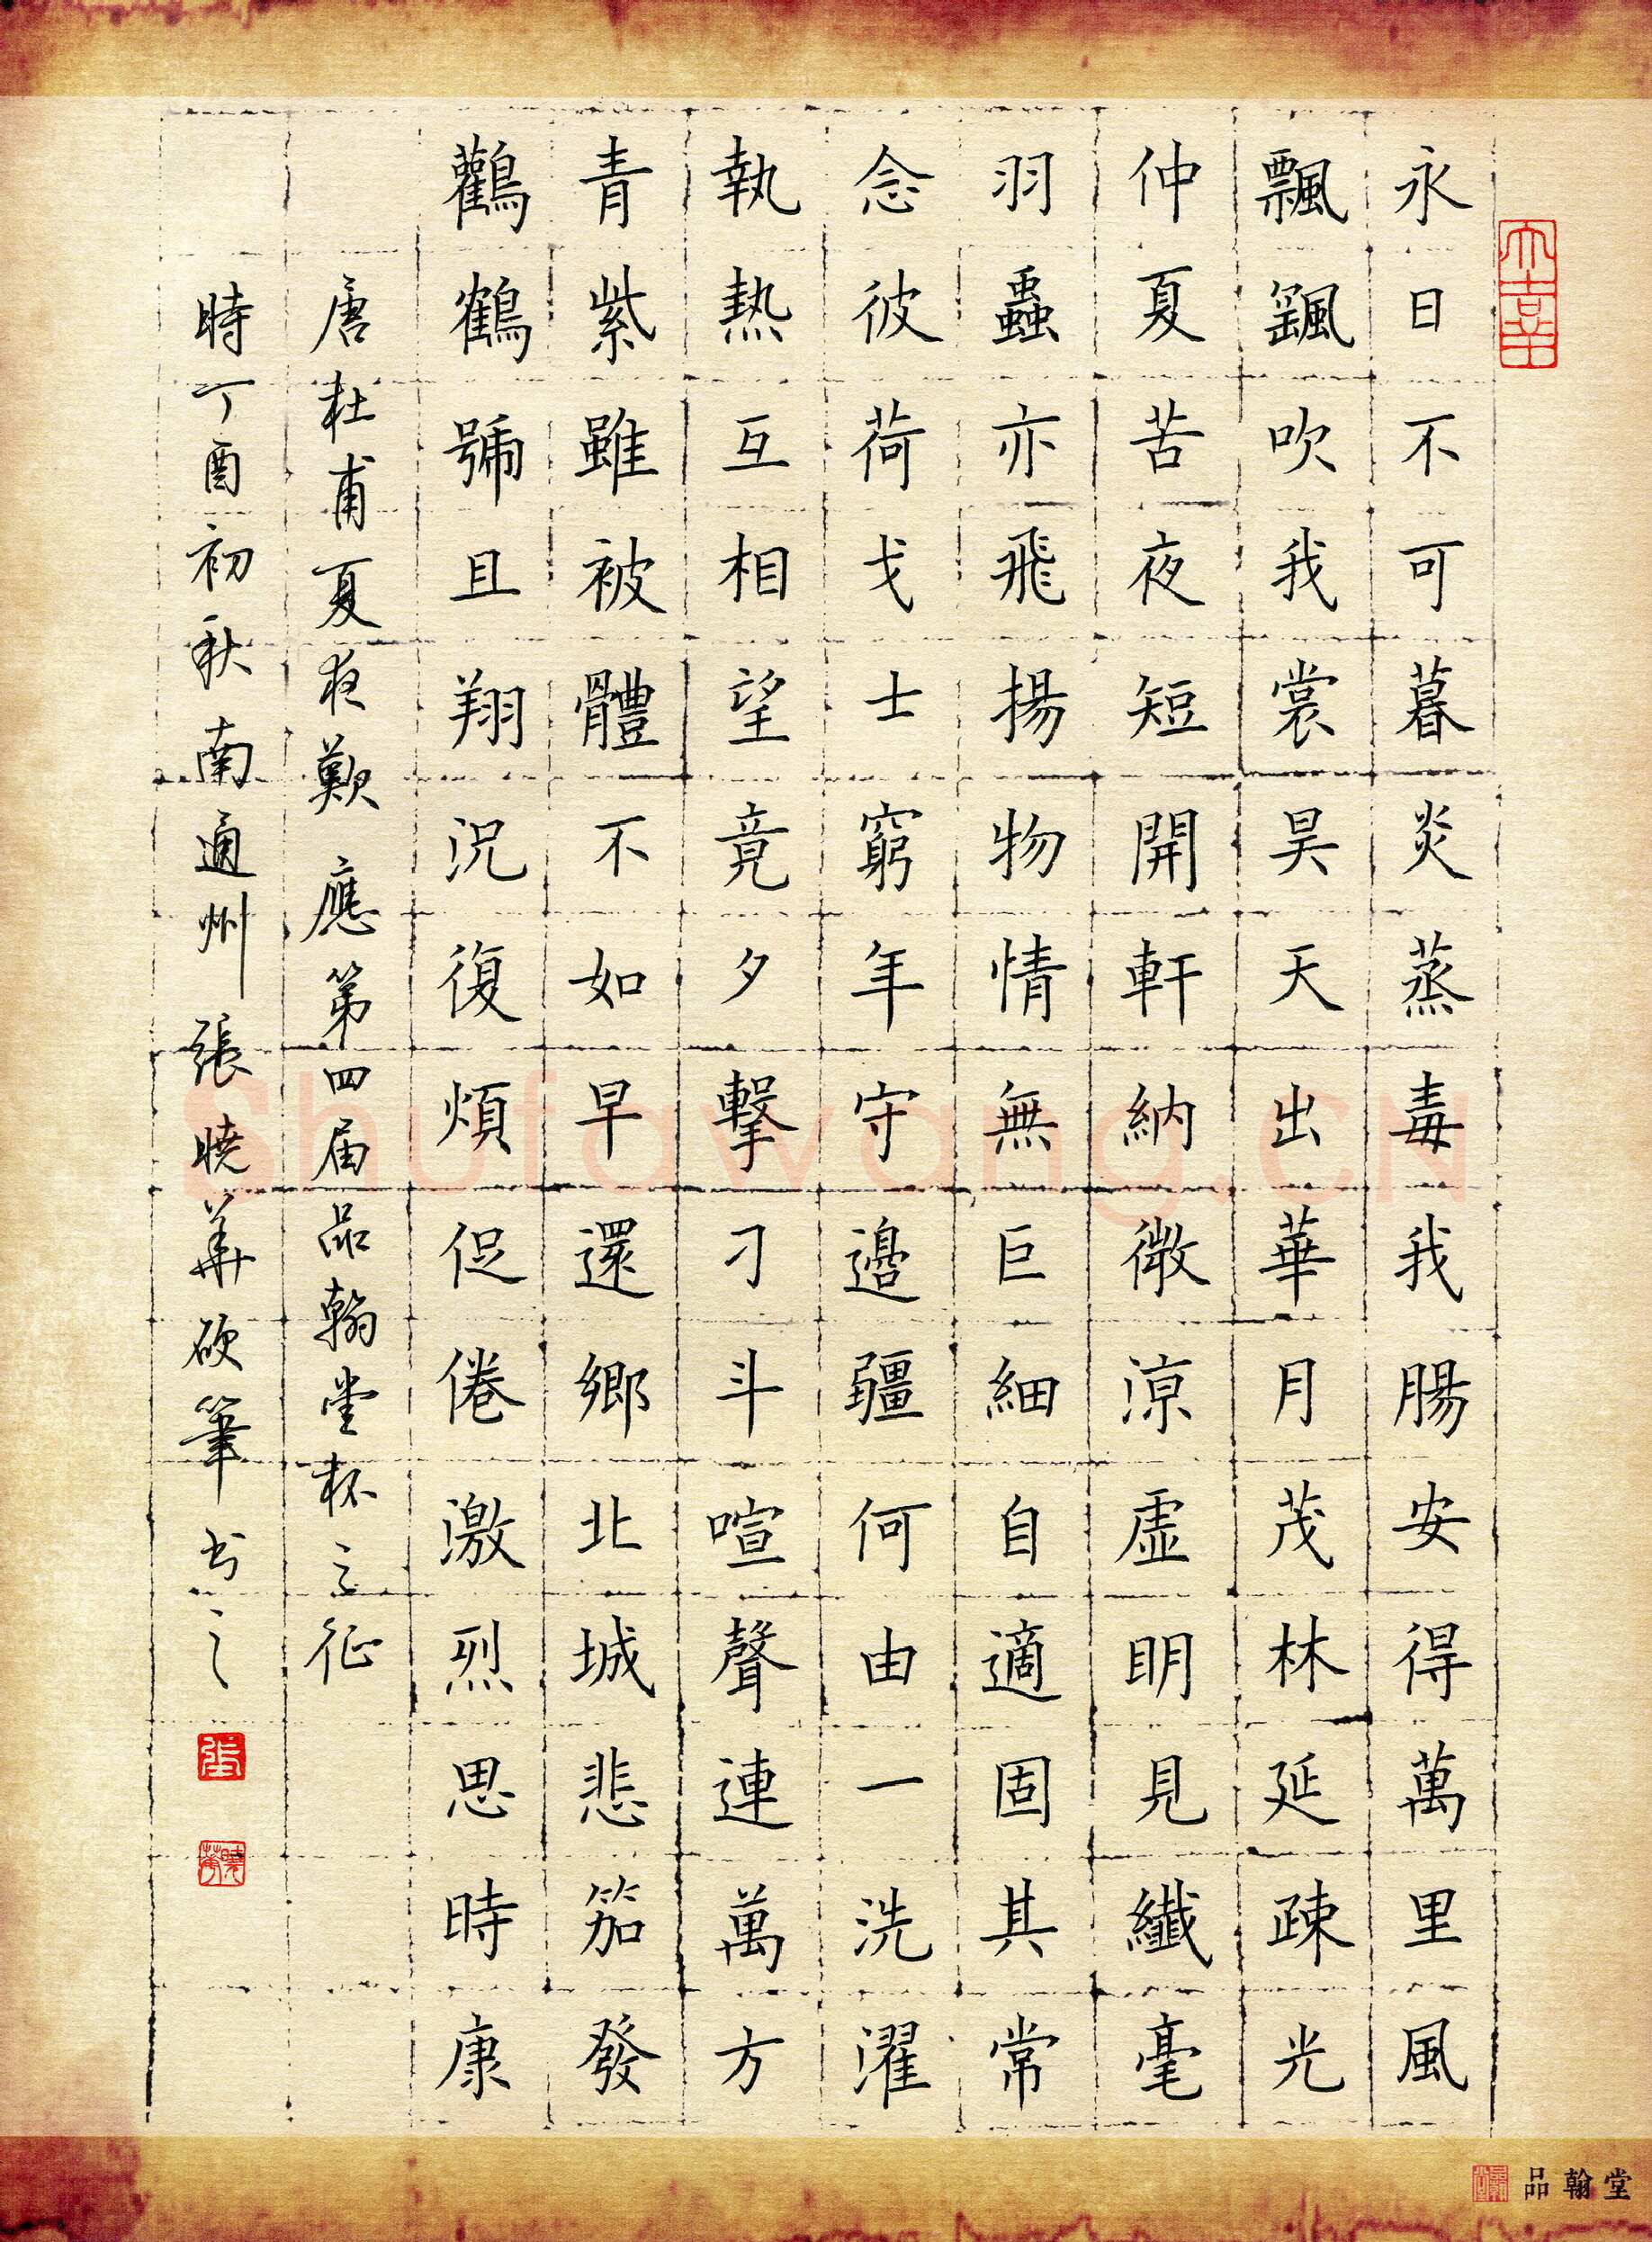 永日不可暮炎蒸毒我腸安得萬里風
飄飖吹我裳昊天出華月茂林延疎光
仲夏苦夜短開軒納微涼虛明見纖毫
羽蟲亦飛揚物情無巨細自適固其常
念彼荷戈士窮年守邊疆何由一洗濯
執熱互相望竟夕擊刁斗喧聲連萬方
青紫雖被體不如早還鄉北城悲笳發
鸛鶴號且翔況復煩促倦激烈思時康
唐杜甫夏夜歎應第四届品翰堂杯之征
時丁酉初秋南通州張曉華硬筆书之
Shufawang.CN
品翰堂